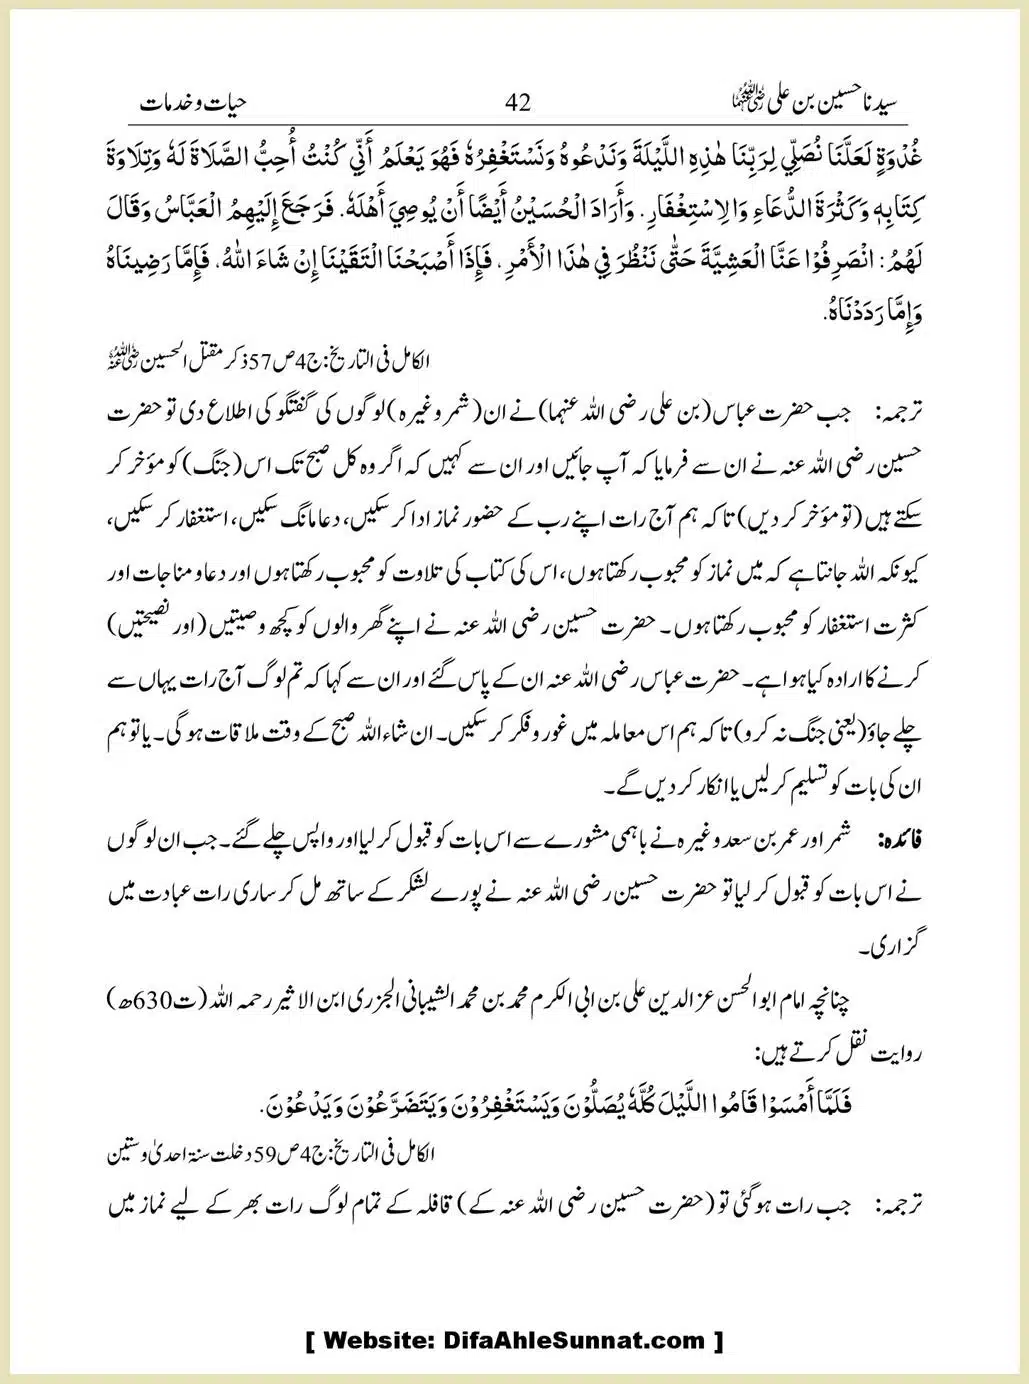 سیدنا حسین بن علی رضی اللہ عنہما 42 حیات و خدمات
غُدْوَةٍ لَعَلَّنَا نُصَلِّي لِرَبِّنَا هٰذِهِ اللَّيْلَةَ وَنَدْعُوهُ وَنَسْتَغْفِرُهُ فَهُوَ يَعْلَمُ أَنِّي كُنْتُ أُحِبُّ الصَّلَاةَ لَهُ وَتِلَاوَةَ
كِتَابِهِ وَكَثْرَةَ الدُّعَاءِ وَالِاسْتِغْفَارِ. وَأَرَادَ الْحُسَيْنُ أَيْضًا أَنْ يُوصِيَ أَهْلَهُ. فَرَجَعَ إِلَيْهِمُ الْعَبَّاسُ وَقَالَ
لَهُمُ: انْصَرِفُوْا عَنَّا الْعَشِيَّةَ حَتّٰى نَنْظُرَ فِي هٰذَا الْأَمْرِ. فَإِذَا أَصْبَحْنَا الْتَقَيْنَا إِنْ شَاءَ اللّٰهُ. فَإِمَّا رَضِينَاهُ
وَإِمَّا رَدَدْنَاهُ.
الکامل فی التاریخ: ج4ص57 ذکر مقتل الحسین رضی اللہ عنہ
ترجمہ: جب حضرت عباس (بن علی رضی اللہ عنہما) نے ان (شمر وغیرہ) لوگوں کی گفتگو کی اطلاع دی تو حضرت
حسین رضی اللہ عنہ نے ان سے فرمایا کہ آپ جائیں اور ان سے کہیں کہ اگر وہ کل صبح تک اس (جنگ) کو مؤخر کر
سکتے ہیں (تو مؤخر کر دیں) تاکہ ہم آج رات اپنے رب کے حضور نماز ادا کر سکیں، دعا مانگ سکیں، استغفار کر سکیں،
کیونکہ اللہ جانتا ہے کہ میں نماز کو محبوب رکھتا ہوں، اس کی کتاب کی تلاوت کو محبوب رکھتا ہوں اور دعا و مناجات اور
کثرت استغفار کو محبوب رکھتا ہوں۔ حضرت حسین رضی اللہ عنہ نے اپنے گھر والوں کو کچھ وصیتیں (اور نصیحتیں)
کرنے کا ارادہ کیا ہوا ہے۔ حضرت عباس رضی اللہ عنہ ان کے پاس گئے اور ان سے کہا کہ تم لوگ آج رات یہاں سے
چلے جاؤ (یعنی جنگ نہ کرو) تاکہ ہم اس معاملہ میں غور و فکر کر سکیں۔ ان شاء اللہ صبح کے وقت ملاقات ہو گی۔ یا تو ہم
ان کی بات کو تسلیم کر لیں یا انکار کر دیں گے۔
فائدہ: شمر اور عمر بن سعد وغیرہ نے باہمی مشورے سے اس بات کو قبول کر لیا اور واپس چلے گئے۔ جب ان لوگوں
نے اس بات کو قبول کر لیا تو حضرت حسین رضی اللہ عنہ نے پورے لشکر کے ساتھ مل کر ساری رات عبادت میں
گزاری۔
چنانچہ امام ابو الحسن عز الدین علی بن ابی الکرم محمد بن محمد الشیبانی الجزری ابن الاثیر رحمہ اللہ (ت630ھ)
روایت نقل کرتے ہیں:
فَلَمَّا أَمْسَوْا قَامُوا اللَّيْلَ كُلَّهُ يُصَلُّوْنَ وَيَسْتَغْفِرُوْنَ وَيَتَضَرَّعُوْنَ وَيَدْعُوْنَ.
الکامل فی التاریخ: ج4ص59 دخلت سنۃ احدیٰ و ستین
ترجمہ: جب رات ہو گئی تو (حضرت حسین رضی اللہ عنہ کے) قافلہ کے تمام لوگ رات بھر کے لیے نماز میں
[ Website: DifaAhleSunnat.com ]